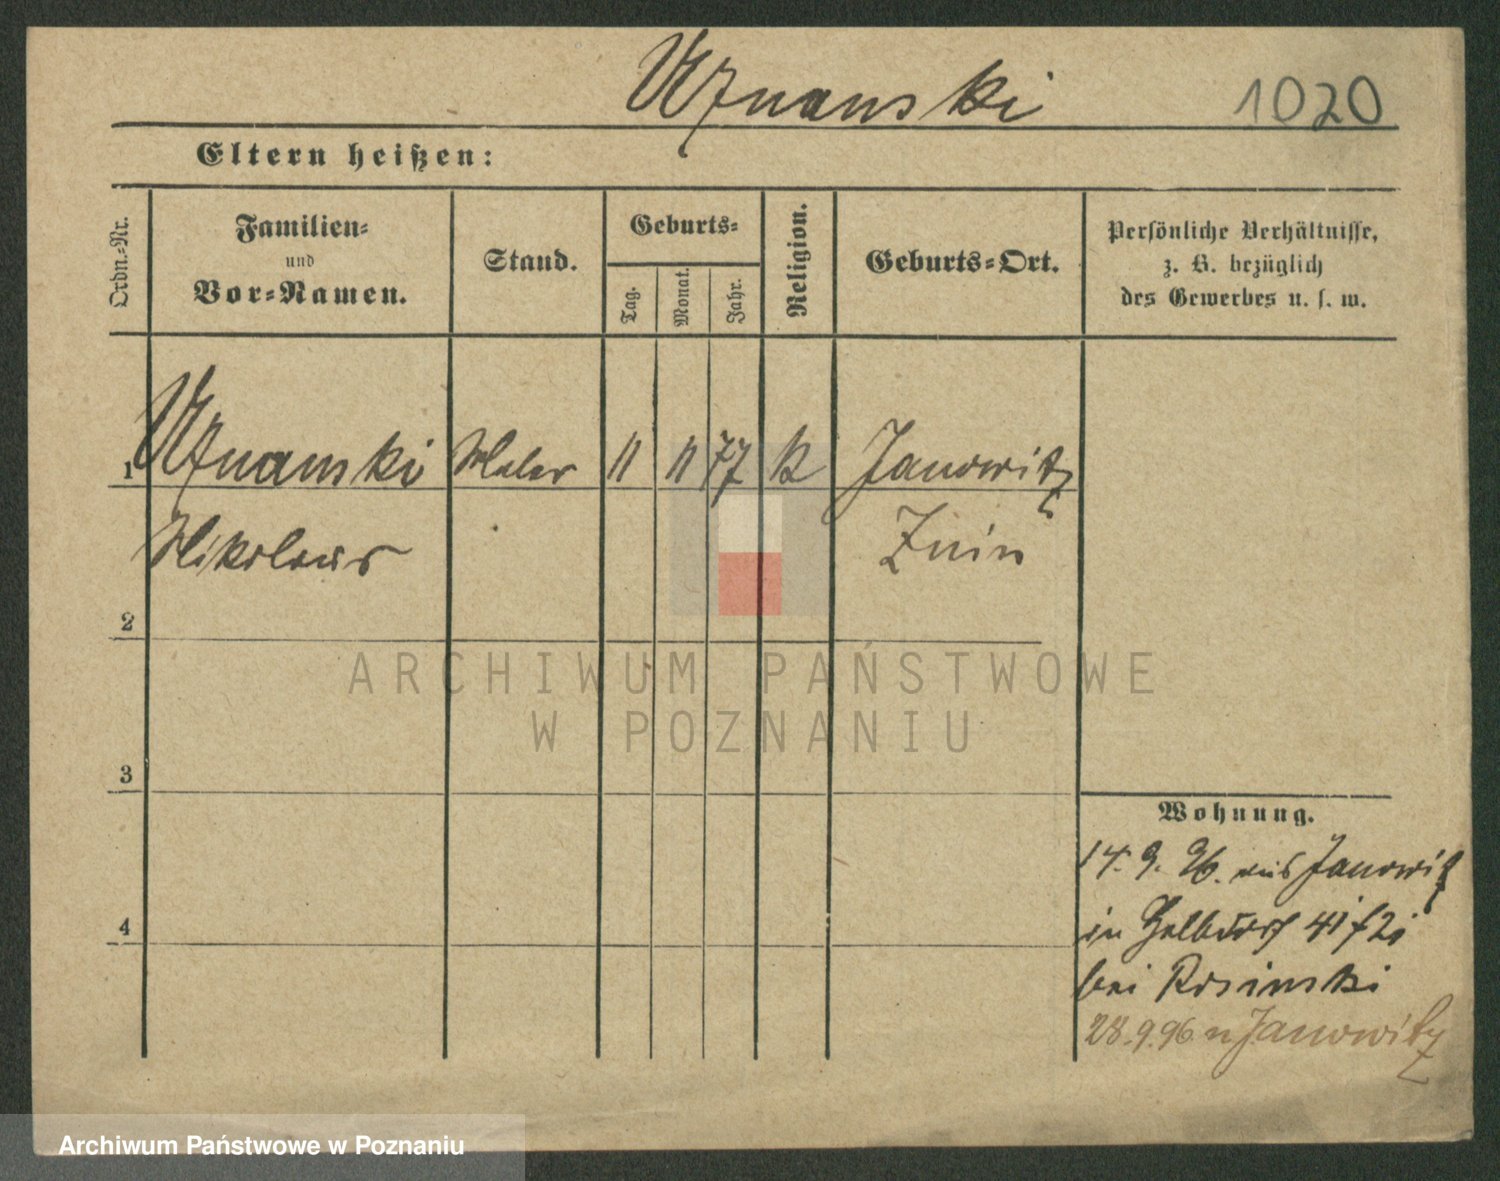 Uznanski 1020
Eltern heißen:
Ordn.-Nr.
Familien-
und
Vor-Namen.
Stand.
Geburts-
Tag.
Monat.
Jahr.
Religion.
Geburts-Ort.
Persönliche Verhältnisse,
z. B. bezüglich
des Gewerbes u. s. w.
1 Uznanski Maler 11 11 77 K Janowitz
Nikolaus Znin
2
3
4
Wohnung.
14. 9. 96. aus Janowitz
in 41
bei Rosinski
28.9.96 n Janowitz
ARCHIWUM PAŃSTWOWE
W POZNANIU
Archiwum Państwowe w Poznaniu